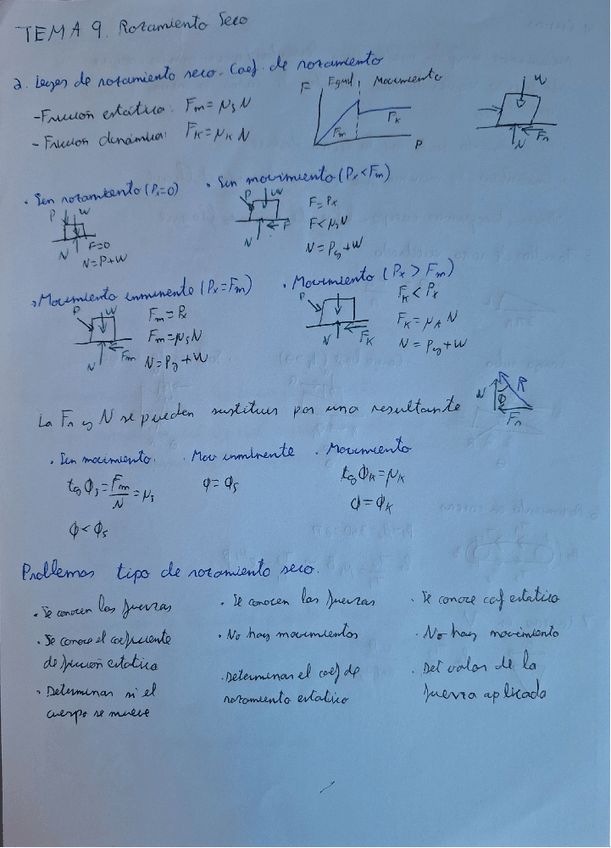 TEMA 9. Rozamiento Seco
2. Leyes de rozamiento seco. Coef. de rozamiento
- Fricción estática: Fm = μs N
- Fricción dinámica: Fk = μk N
F Equil Movimiento
Fm Fk
P
W
N Fr
· Sin rozamiento (Px=0)
P W
N F=0
N=P+W
· Sin movimiento (Px<Fm)
P W
N F
F=Px
F<μs N
N=Py+W
· Movimiento inminente (Px=Fm)
P W
N Fm
Fm=Px
Fm=μs N
N=Py+W
· Movimiento (Px>Fm)
P W
N Fk
Fk<Px
Fk=μk N
N=Py+W
La Fr y N se pueden sustituir por una resultante
N Φ R
Fr
· Sin movimiento.
tg Φs = Fm/N = μs
Φ<Φs
· Mov inminente
Φ=Φs
· Movimiento
tg Φk = μk
Φ=Φk
Problemas tipo de rozamiento seco.
· Se conocen las fuerzas
· Se conoce el coeficiente
de fricción estatica
· Determinar si el
cuerpo se mueve
· Se conocen las fuerzas
· No hay movimientos
· Determinar el coef de
rozamiento estatico
· Se conoce coef estatico
· No hay movimiento
· Det valor de la
fuerza aplicada